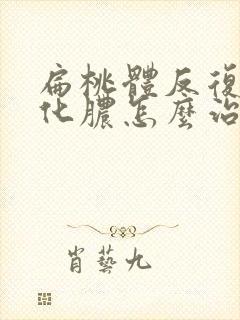 扁桃體反復
化膿怎麼治
肖藝九